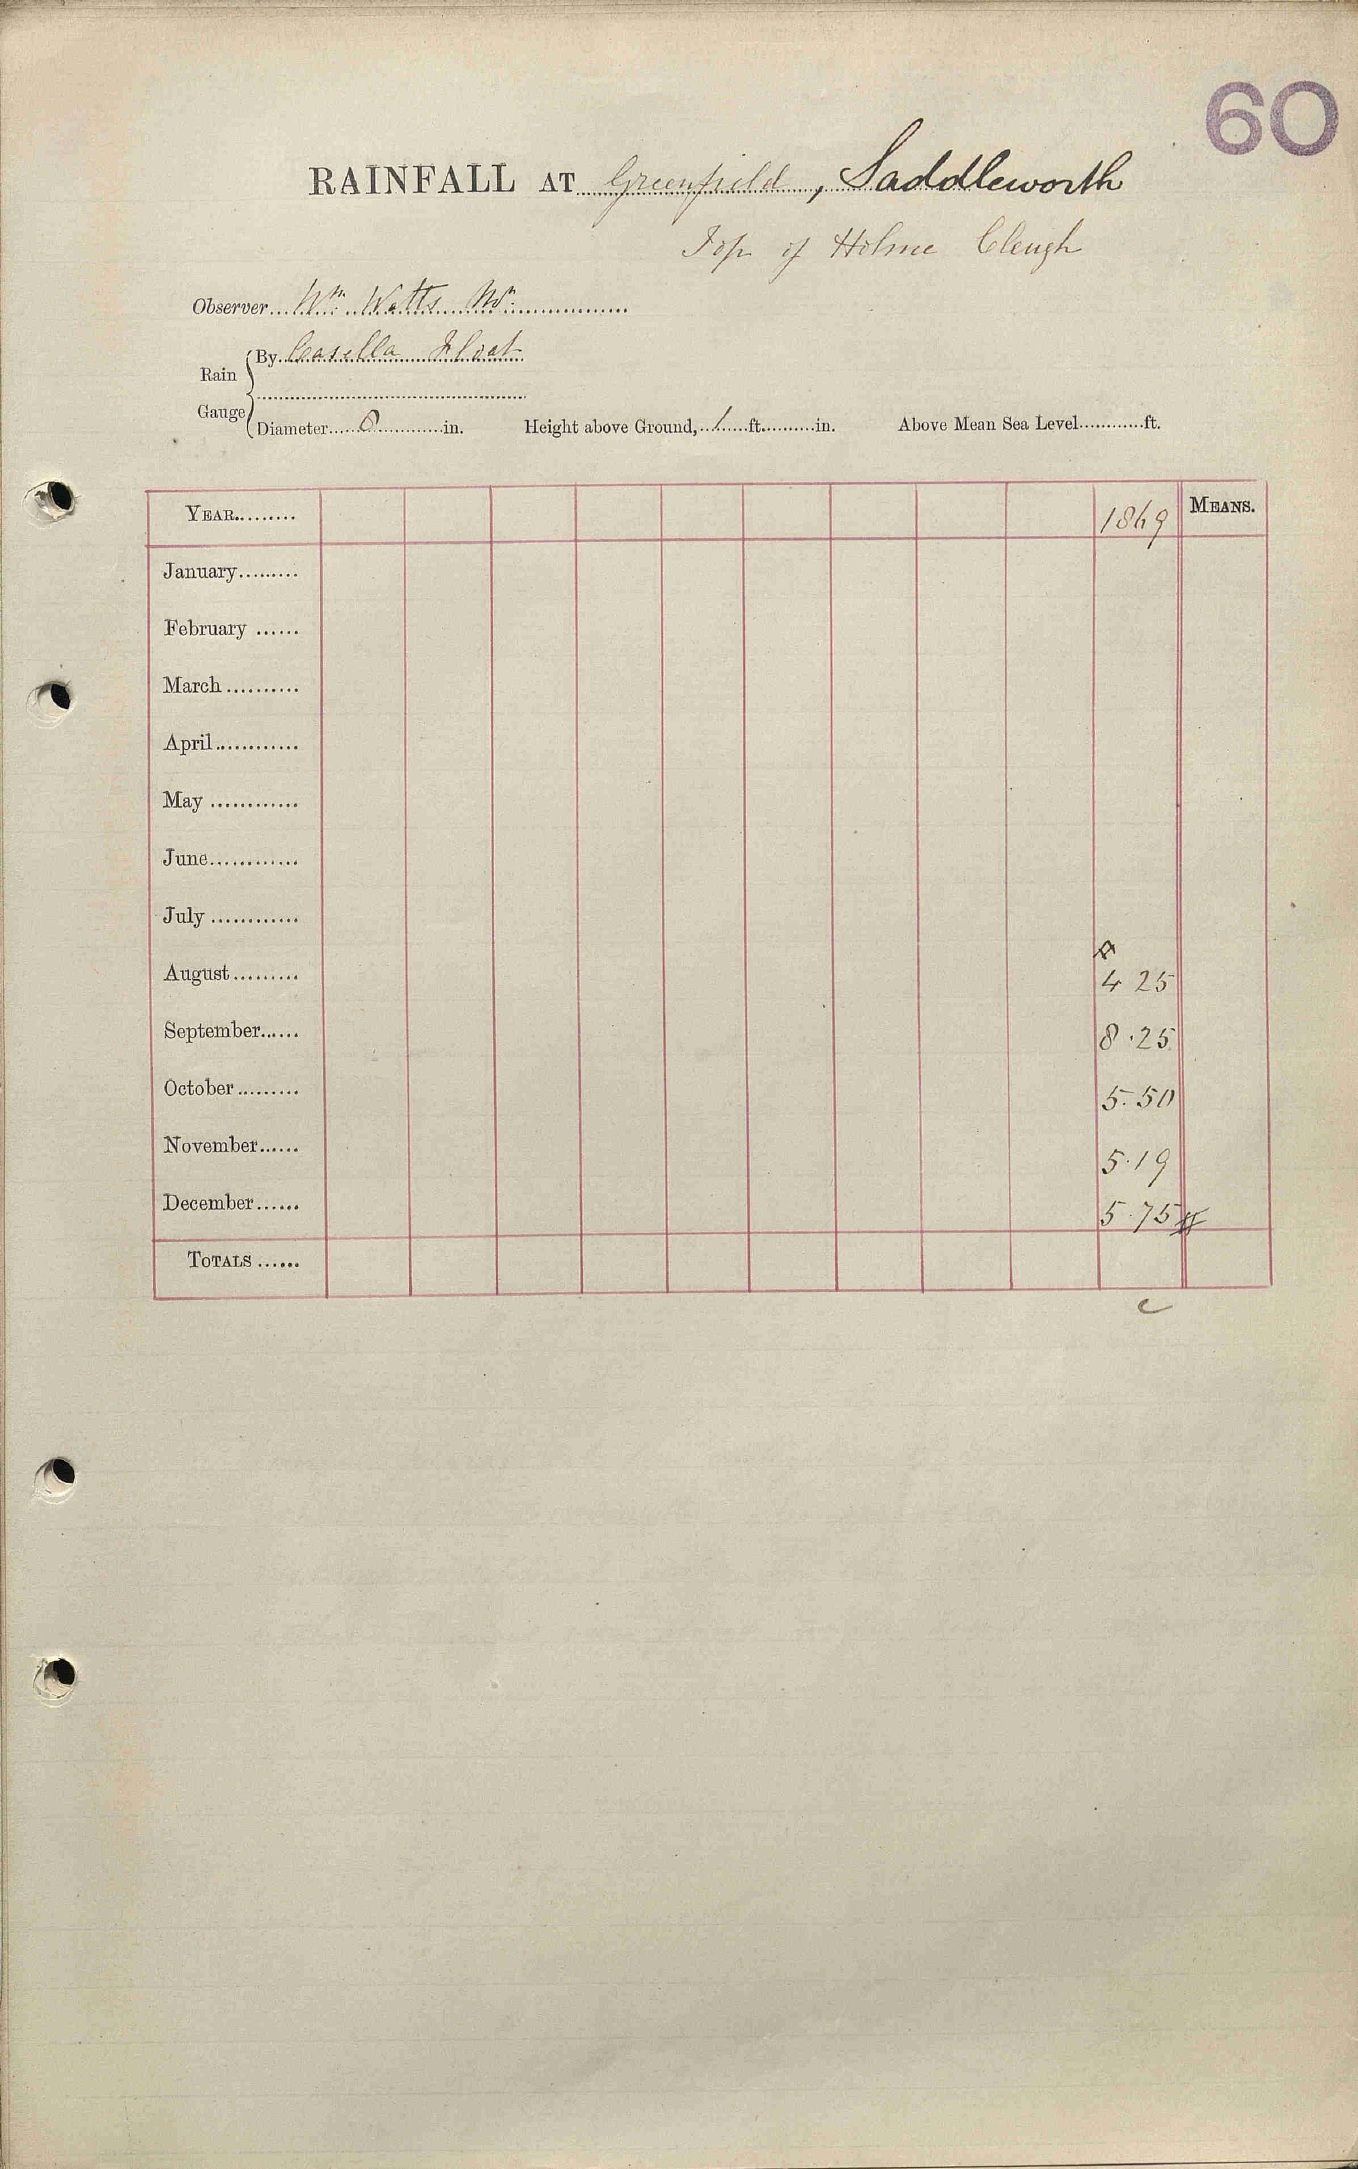 60
RAINFALL AT Greenfield, Saddleworth
Top of Holme Clough
Observer Wm. Watts
Rain Gauge
By Casella Float
Diameter 8 in. Height above Ground, 1 ft. in. Above Mean Sea Level ft.
YEAR 1869 MEANS.
January
February
March
April
May
June
July
August 4 25
September 8.25
October 5.50
November 5.19
December 5.75 #
TOTALS
c